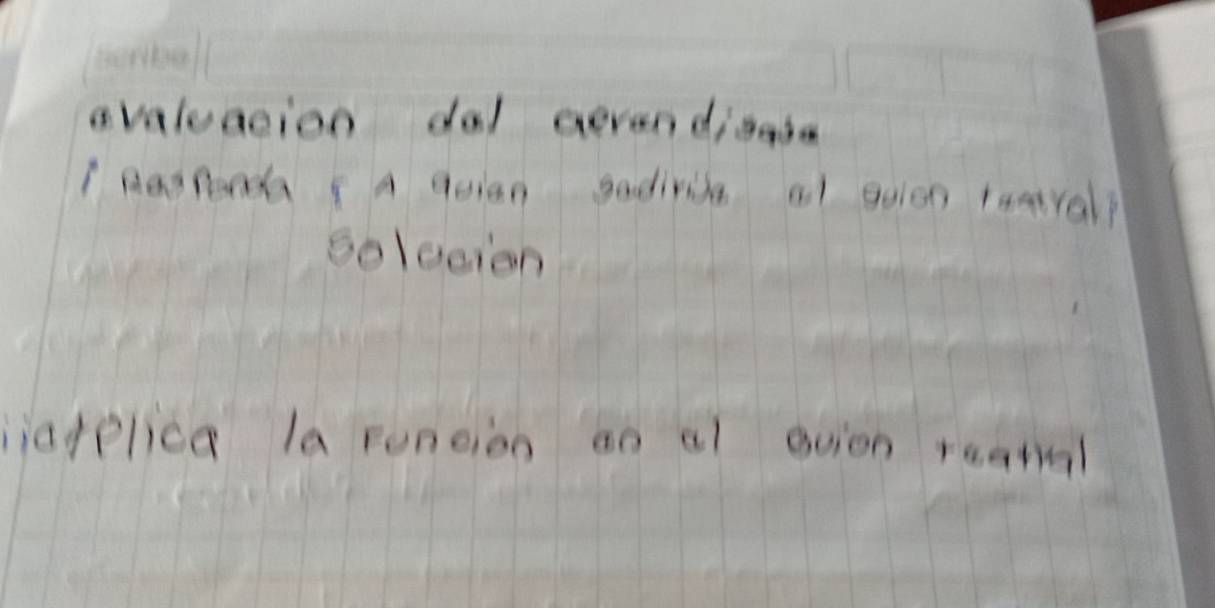 scribe
evaluacion del aprendisaje
i Responda ¿ A quien sedirije el guion teatral?
Solucion
ii explica la Función en el guion teatral